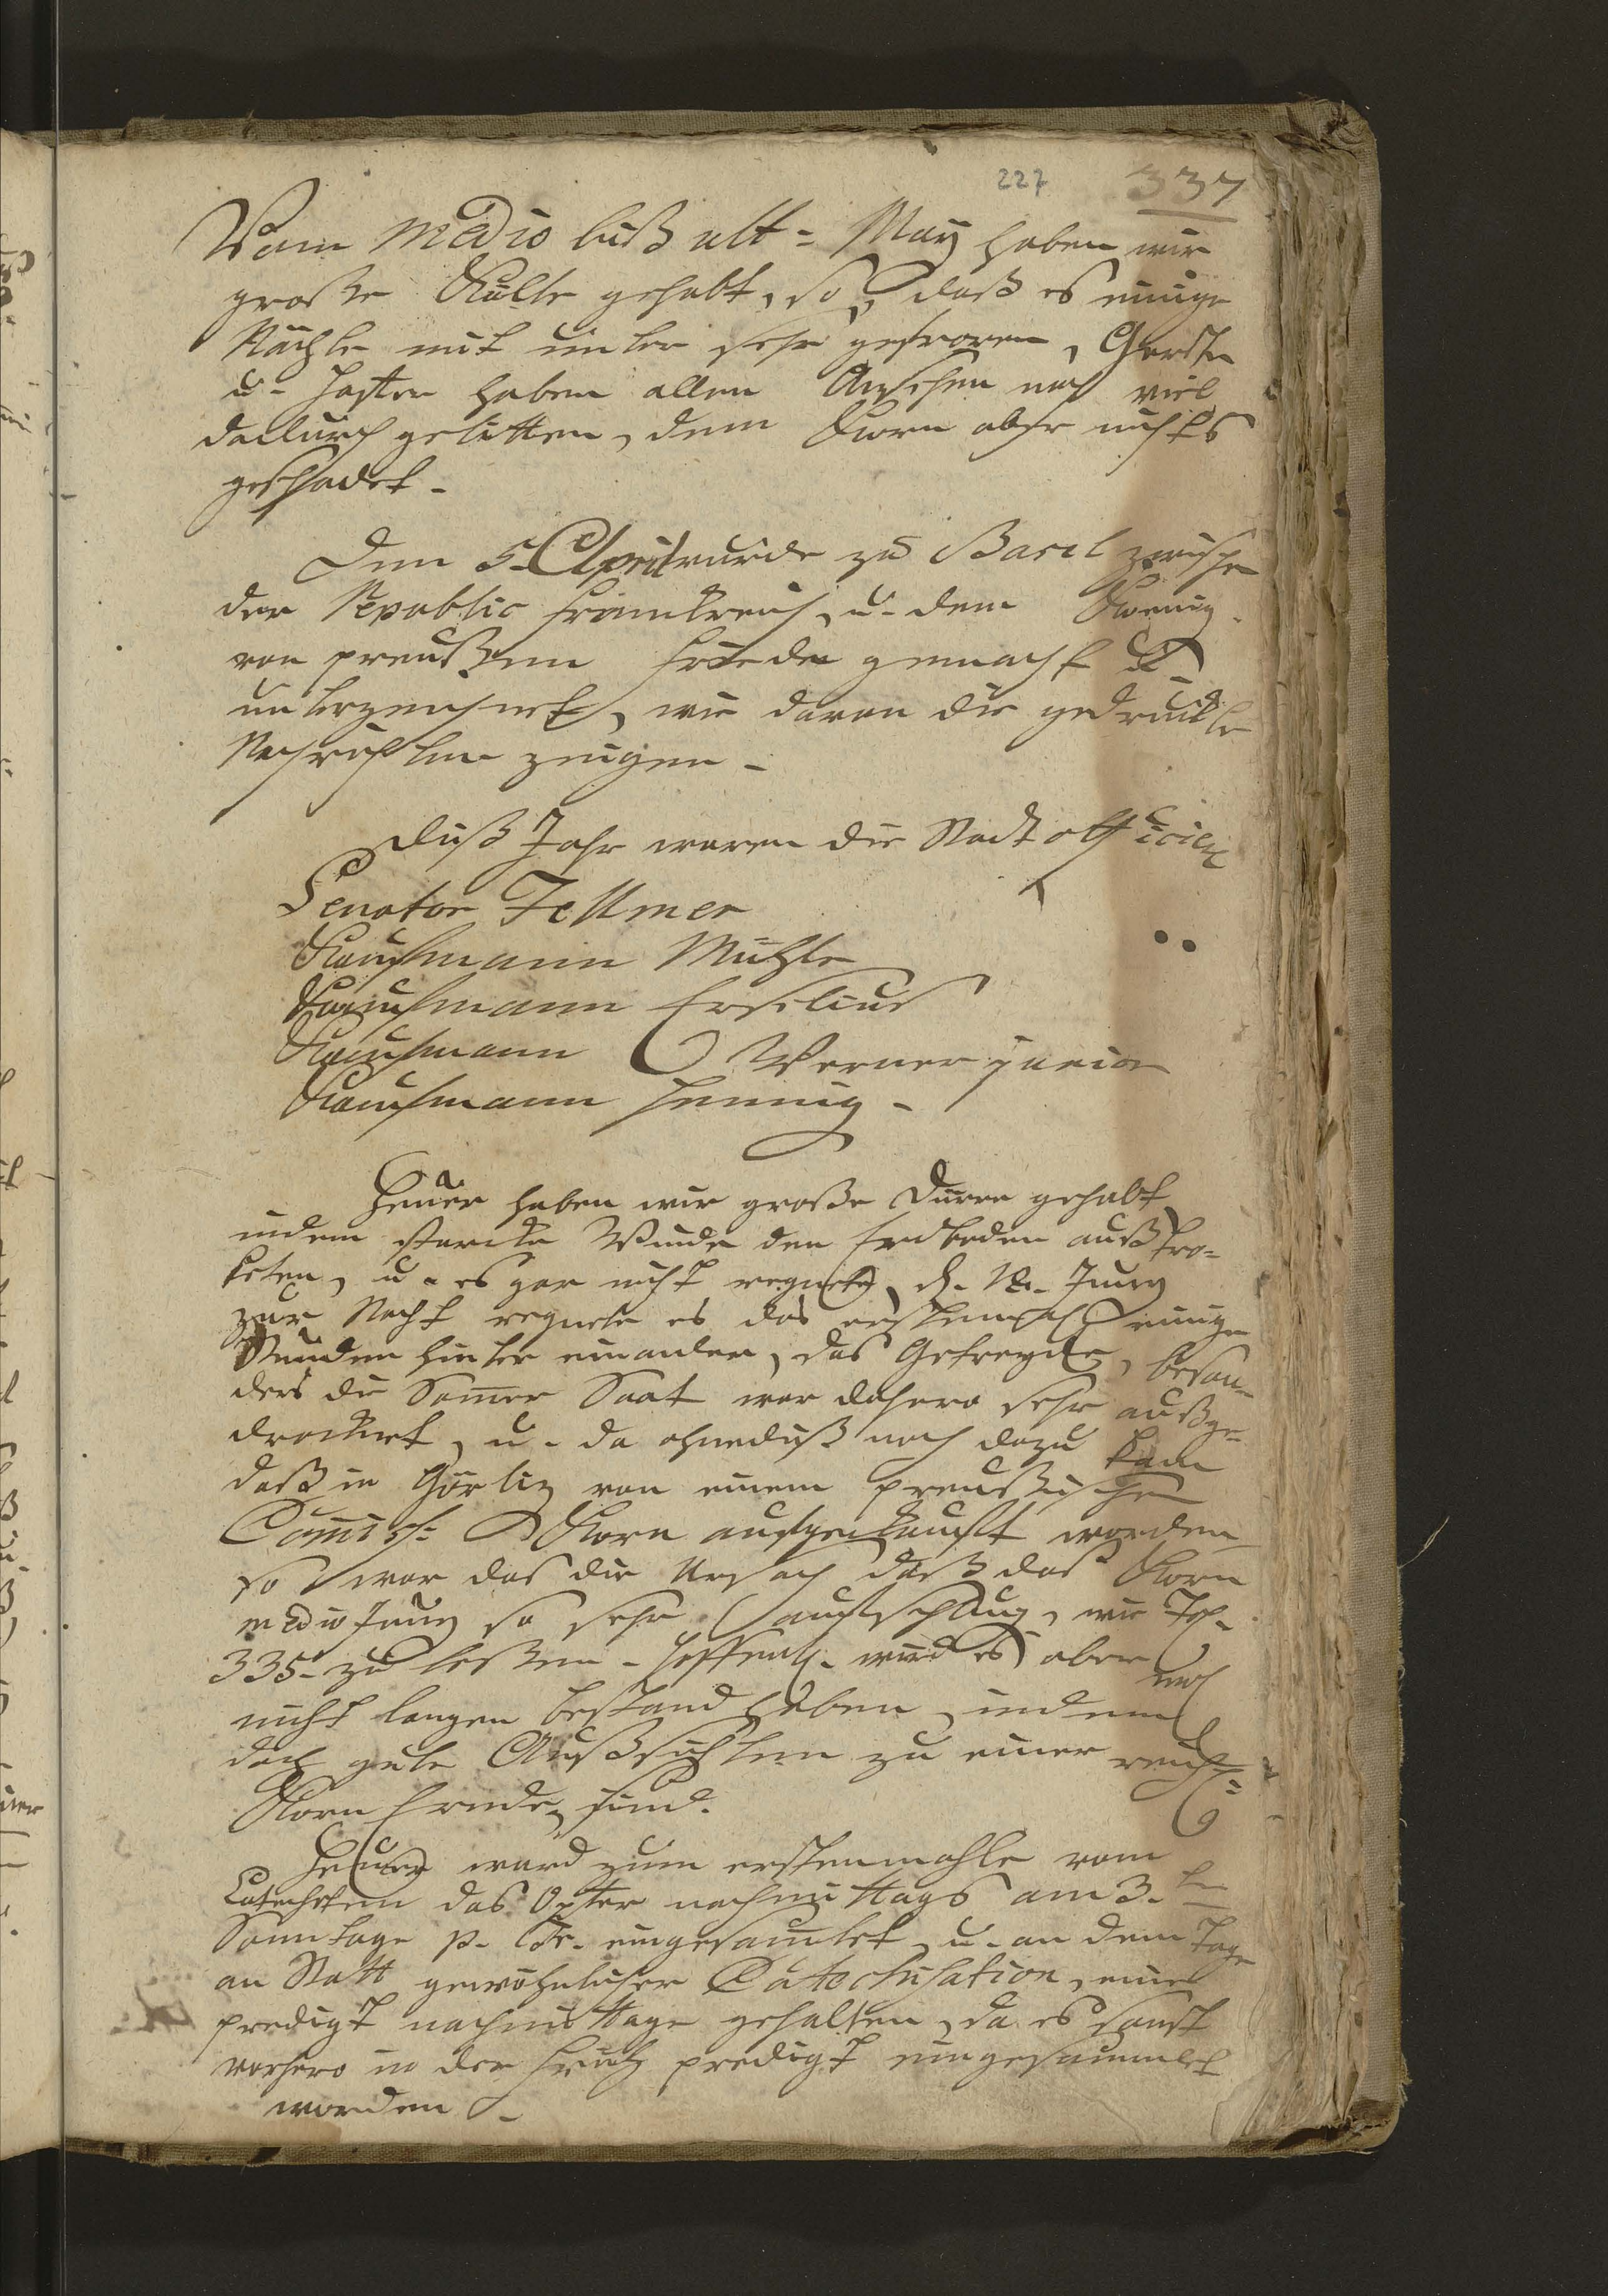 227 337
Vom medio biß ult = May haben wir
große Kälte gehabt, so daß es einige
Nächte mit unter sehr gefroren, Gersten
u. Hafer haben allem Ansehen nach viel
dadurch gelitten, dem Korn aber nichts
geschadet.
Den 5. April wurde zu Basel zwischen
der Republic Franckreich, u. dem Koenig
von Preußen Friede gemacht u.
unterzeichnet, wie davon die gedruckte
Nachrichten zeugen.
Diß Jahr waren die Stadt officier
Senator Fellmer
Kaufmann Mühle
Kaufmann
Kaufmann Werner junior
Kaufmann Hennig.
Heuer haben wir große Dürre gehabt
indem starcke Winde den Erdboden außtro=
keten, u. es gar nicht regnete, d. 12. Juny
zur Nacht regnete es das erstemahl einige
Stunden hinter einander, das Getreyde, beson=
ders die Somer Saat war dahero sehr außge=
drocknet, u. da ohnediß noch dazu kam
daß in Görliz von einem Preußischen
Comiss: Korn aufgekauft worden
so war das die Ursach daß das Korn
medio Juny so sehr aufschlug, wie Fol.
335. zu leßen. Hoffentl. wird es aber
nicht langen bestand haben, indem noch
doch gute Außsichten zu einer reichen
Korn Ernde sind.
Heuer ward zum erstenmahle vom
Catecheten das Opfer nachmittags am 3. ten
Sonntage p. Tr. eingesamlet, u. an dem Tage
an Statt gewöhnlicher Catechisation, eine
Predigt nachmittage gehalten, da es sonst
vorhero in der Früh predigt eingesammlet
worden.